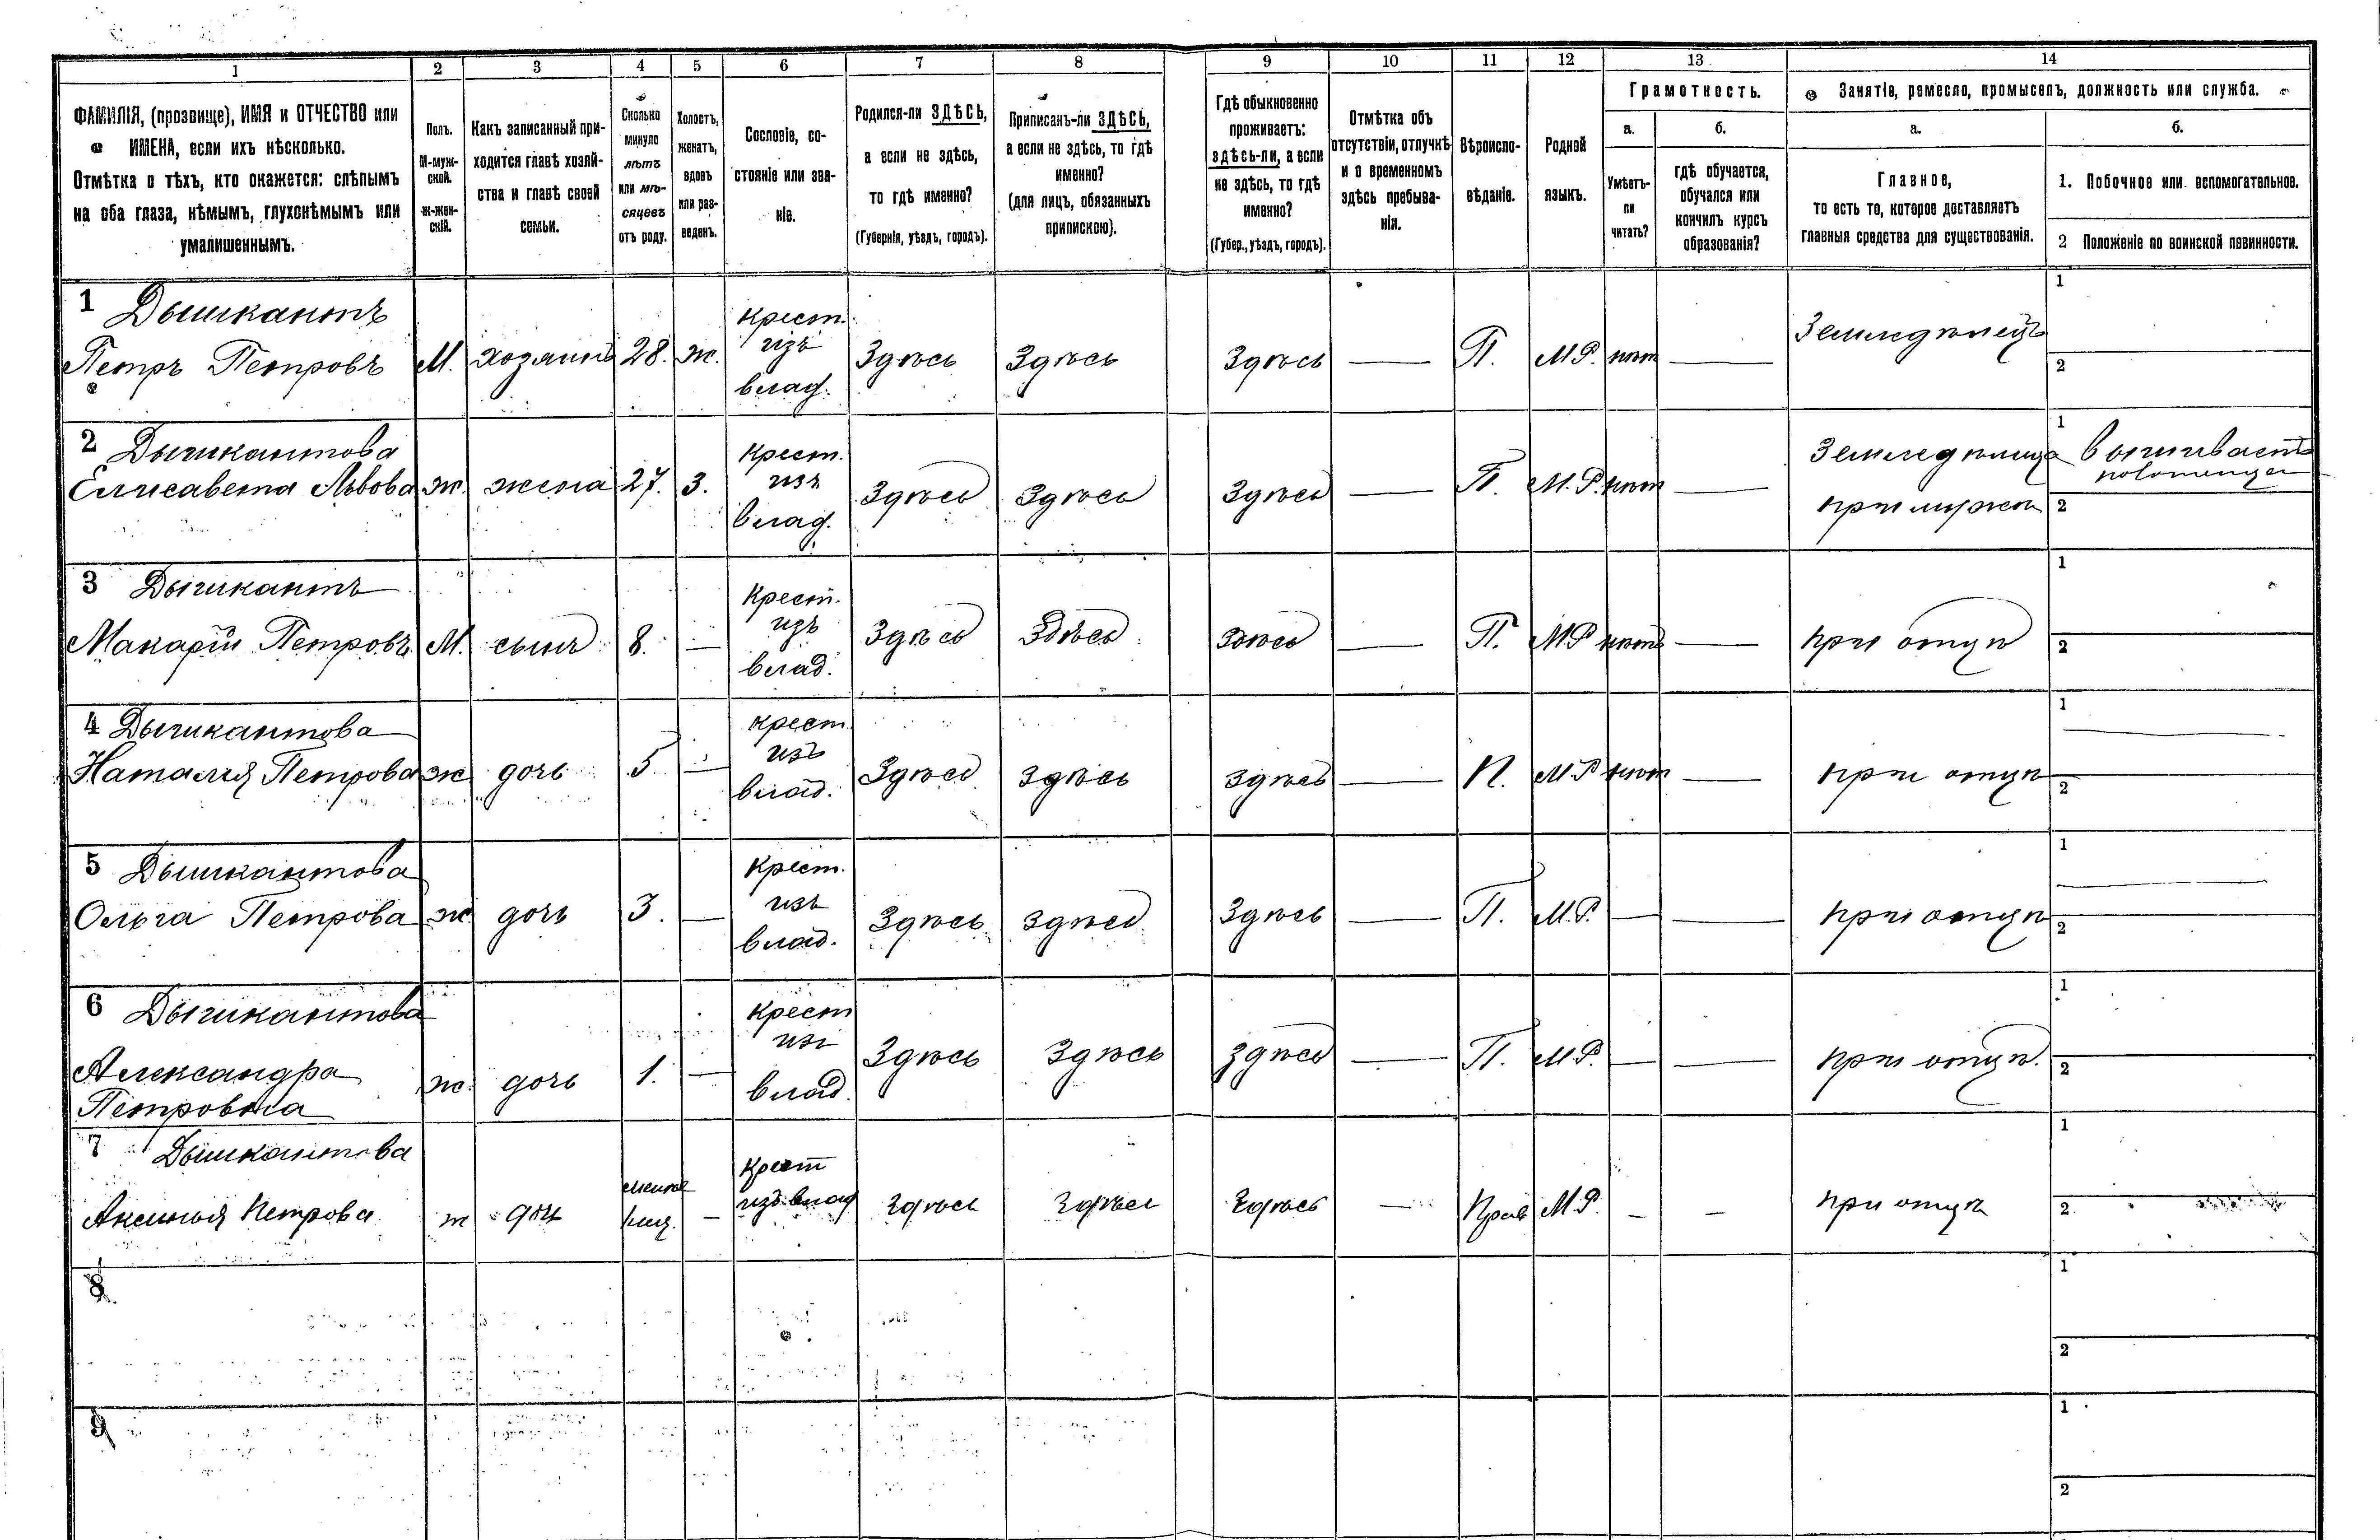 1 2 3 4 5 6 7 8 9 10 11 12 13 14
ФАМИЛІЯ, (прозвище), ИМЯ и ОТЧЕСТВО или
ИМЕНА, если ихъ нѣсколько.
Отмѣтка о тѣхъ, кто окажется: слѣпымъ
на оба глаза, нѣмымъ, глухонѣмымъ или
умалишеннымъ.
Полъ.
М-муж-
ской.
ж-жен-
скій.
Какъ записанный при-
ходится главѣ хозяй-
ства и главѣ своей
семьи.
Сколько
минуло
лѣтъ
или мѣ-
сяцевъ
отъ роду.
Холостъ,
женатъ,
вдовъ
или раз-
веденъ.
Сословіе, со-
стояніе или зва-
ніе.
Родился-ли ЗДѢСЬ,
а если не здѣсь,
то гдѣ именно?
(Губернія, уѣздъ, городъ).
Приписанъ-ли ЗДѢСЬ,
а если не здѣсь, то гдѣ
именно?
(для лицъ, обязанныхъ
припискою).
Гдѣ обыкновенно
проживаетъ:
здѣсь-ли, а если
не здѣсь, то гдѣ
именно?
(Губер., уѣздъ, городъ).
Отмѣтка объ
отсутствіи, отлучкѣ
и о временномъ
здѣсь пребыва-
ніи.
Вѣроиспо-
вѣданіе.
Родной
языкъ.
Грамотность.
а.
Умѣетъ-
ли
читать?
б.
гдѣ обучается,
обучался или
кончилъ курсъ
образованія?
Занятіе, ремесло, промыселъ, должность или служба.
а.
Главное,
то есть то, которое доставляетъ
главныя средства для существованія.
б.
1. Побочное или вспомогательное.
2 Положеніе по воинской повинности.
1 Дышкантъ
Петръ Петровъ М. хозяинъ 28. ж.
крест.
изъ
влад.
Здѣсь Здѣсь Здѣсь — П. М.Р. нѣт —
Земледѣлецъ
1
2
2 Дышкантова
Елисавета Львова ж. жена 27. З.
крест.
изъ
влад.
Здѣсь Здѣсь Здѣсь — П. М.Р. нѣт —
Земледѣлица
при мужѣ
1 вышиваетъ
полотенца
2
3 Дышкантъ
Макарій Петровъ М. сынъ 8. —
крест.
изъ
влад.
Здѣсь Здѣсь Здѣсь — П. М.Р нѣтъ —
при отцѣ
1
2
4 Дышкантова
Наталія Петрова ж дочь 5 —
крест.
изъ
влад.
Здѣсь Здѣсь Здѣсь — П. М.Р нѣт —
при отцѣ
1
2
5 Дышкантова
Ольга Петрова ж дочь 3. —
крест.
изъ
влад.
Здѣсь Здѣсь Здѣсь — П. М.Р. — —
при отцѣ
1
2
6 Дышкантова
Александра
Петровна ж. дочь 1. —
крест
изъ
влад.
Здѣсь Здѣсь Здѣсь — П. М.Р. — —
при отцѣ.
1
2
7 Дышкантова
Аксинья Петрова ж доч
менѣе
1 мц. —
крест
изъ влад
здѣсь здѣсь здѣсь — Прав М.Р. — —
при отцѣ
1
2
8
1
2
9
1
2